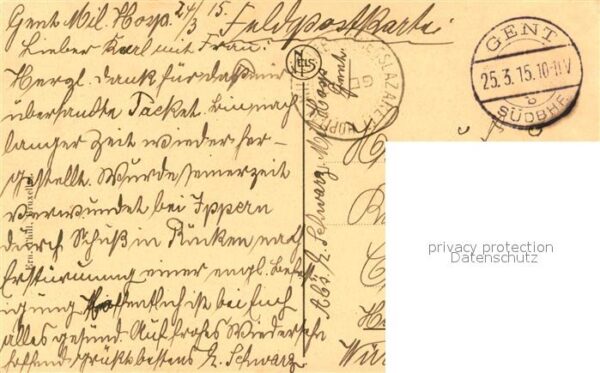 Gent Mil. Hosp. 24/3 15. Feldpostkarte
Lieber Karl mit Frau!
Herzl. Dank für das mir
übersandte Packet. Bin nach
langer Zeit wieder her-
gestellt. Wurde seinerzeit
verwundet bei Yppern
durch Schuß in Rücken nach
Erstürmung einer engl. Befest-
igung. Hoffentlich ist bei Euch
alles gesund. Auf frohes Wiedersehn
hoffend grüßt bestens G. Schwarz
Abs. G. Schwarz, Mil. Hosp
Gent.
Nels
GENT
25.3.15.10-11V
b
SÜDBHF.
privacy protection
Datenschutz